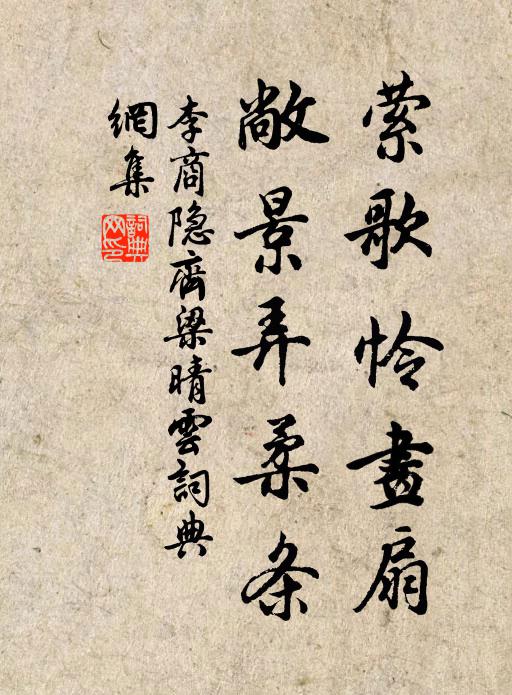 萦歌怜畫扇
敞景弄柔条
李商隐齊梁晴雲詞典
網集
詞典
网印